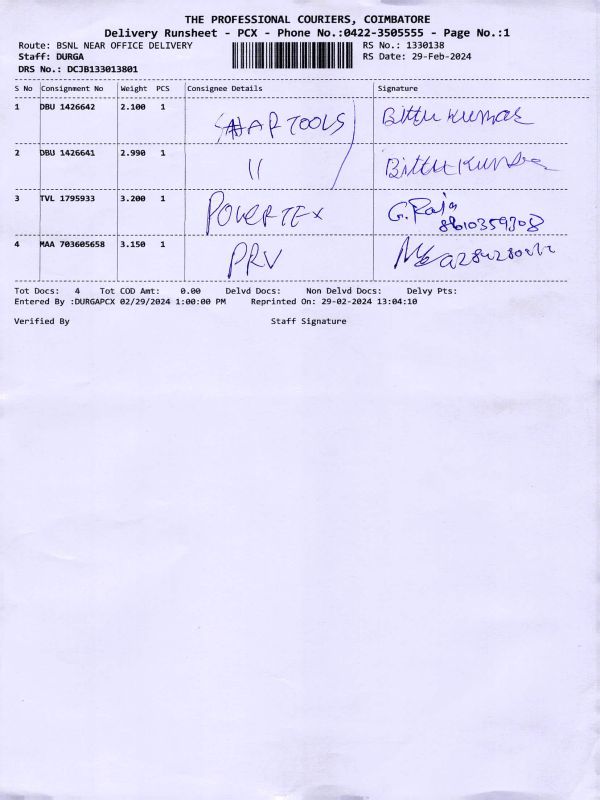 THE PROFESSIONAL COURIERS, COIMBATORE
Delivery Runsheet - PCX - Phone No.:0422-3505555 - Page No.:1
Route: BSNL NEAR OFFICE DELIVERY RS No.: 1330138
Staff: DURGA RS Date: 29-Feb-2024
DRS No.: DCJB133013801
S No Consignment No Weight PCS Consignee Details Signature
1 DBU 1426642 2.100 1 TOOLS Bittu Kumar
2 DBU 1426641 2.990 1 11 Bittu
3 TVL 1795933 3.200 1 POWERTEX G. Raja
8610359308
4 MAA 703605658 3.150 1 PRV
Tot Docs: 4 Tot COD Amt: 0.00 Delvd Docs: Non Delvd Docs: Delvy Pts:
Entered By :DURGAPCX 02/29/2024 1:00:00 PM Reprinted On: 29-02-2024 13:04:10
Verified By Staff Signature